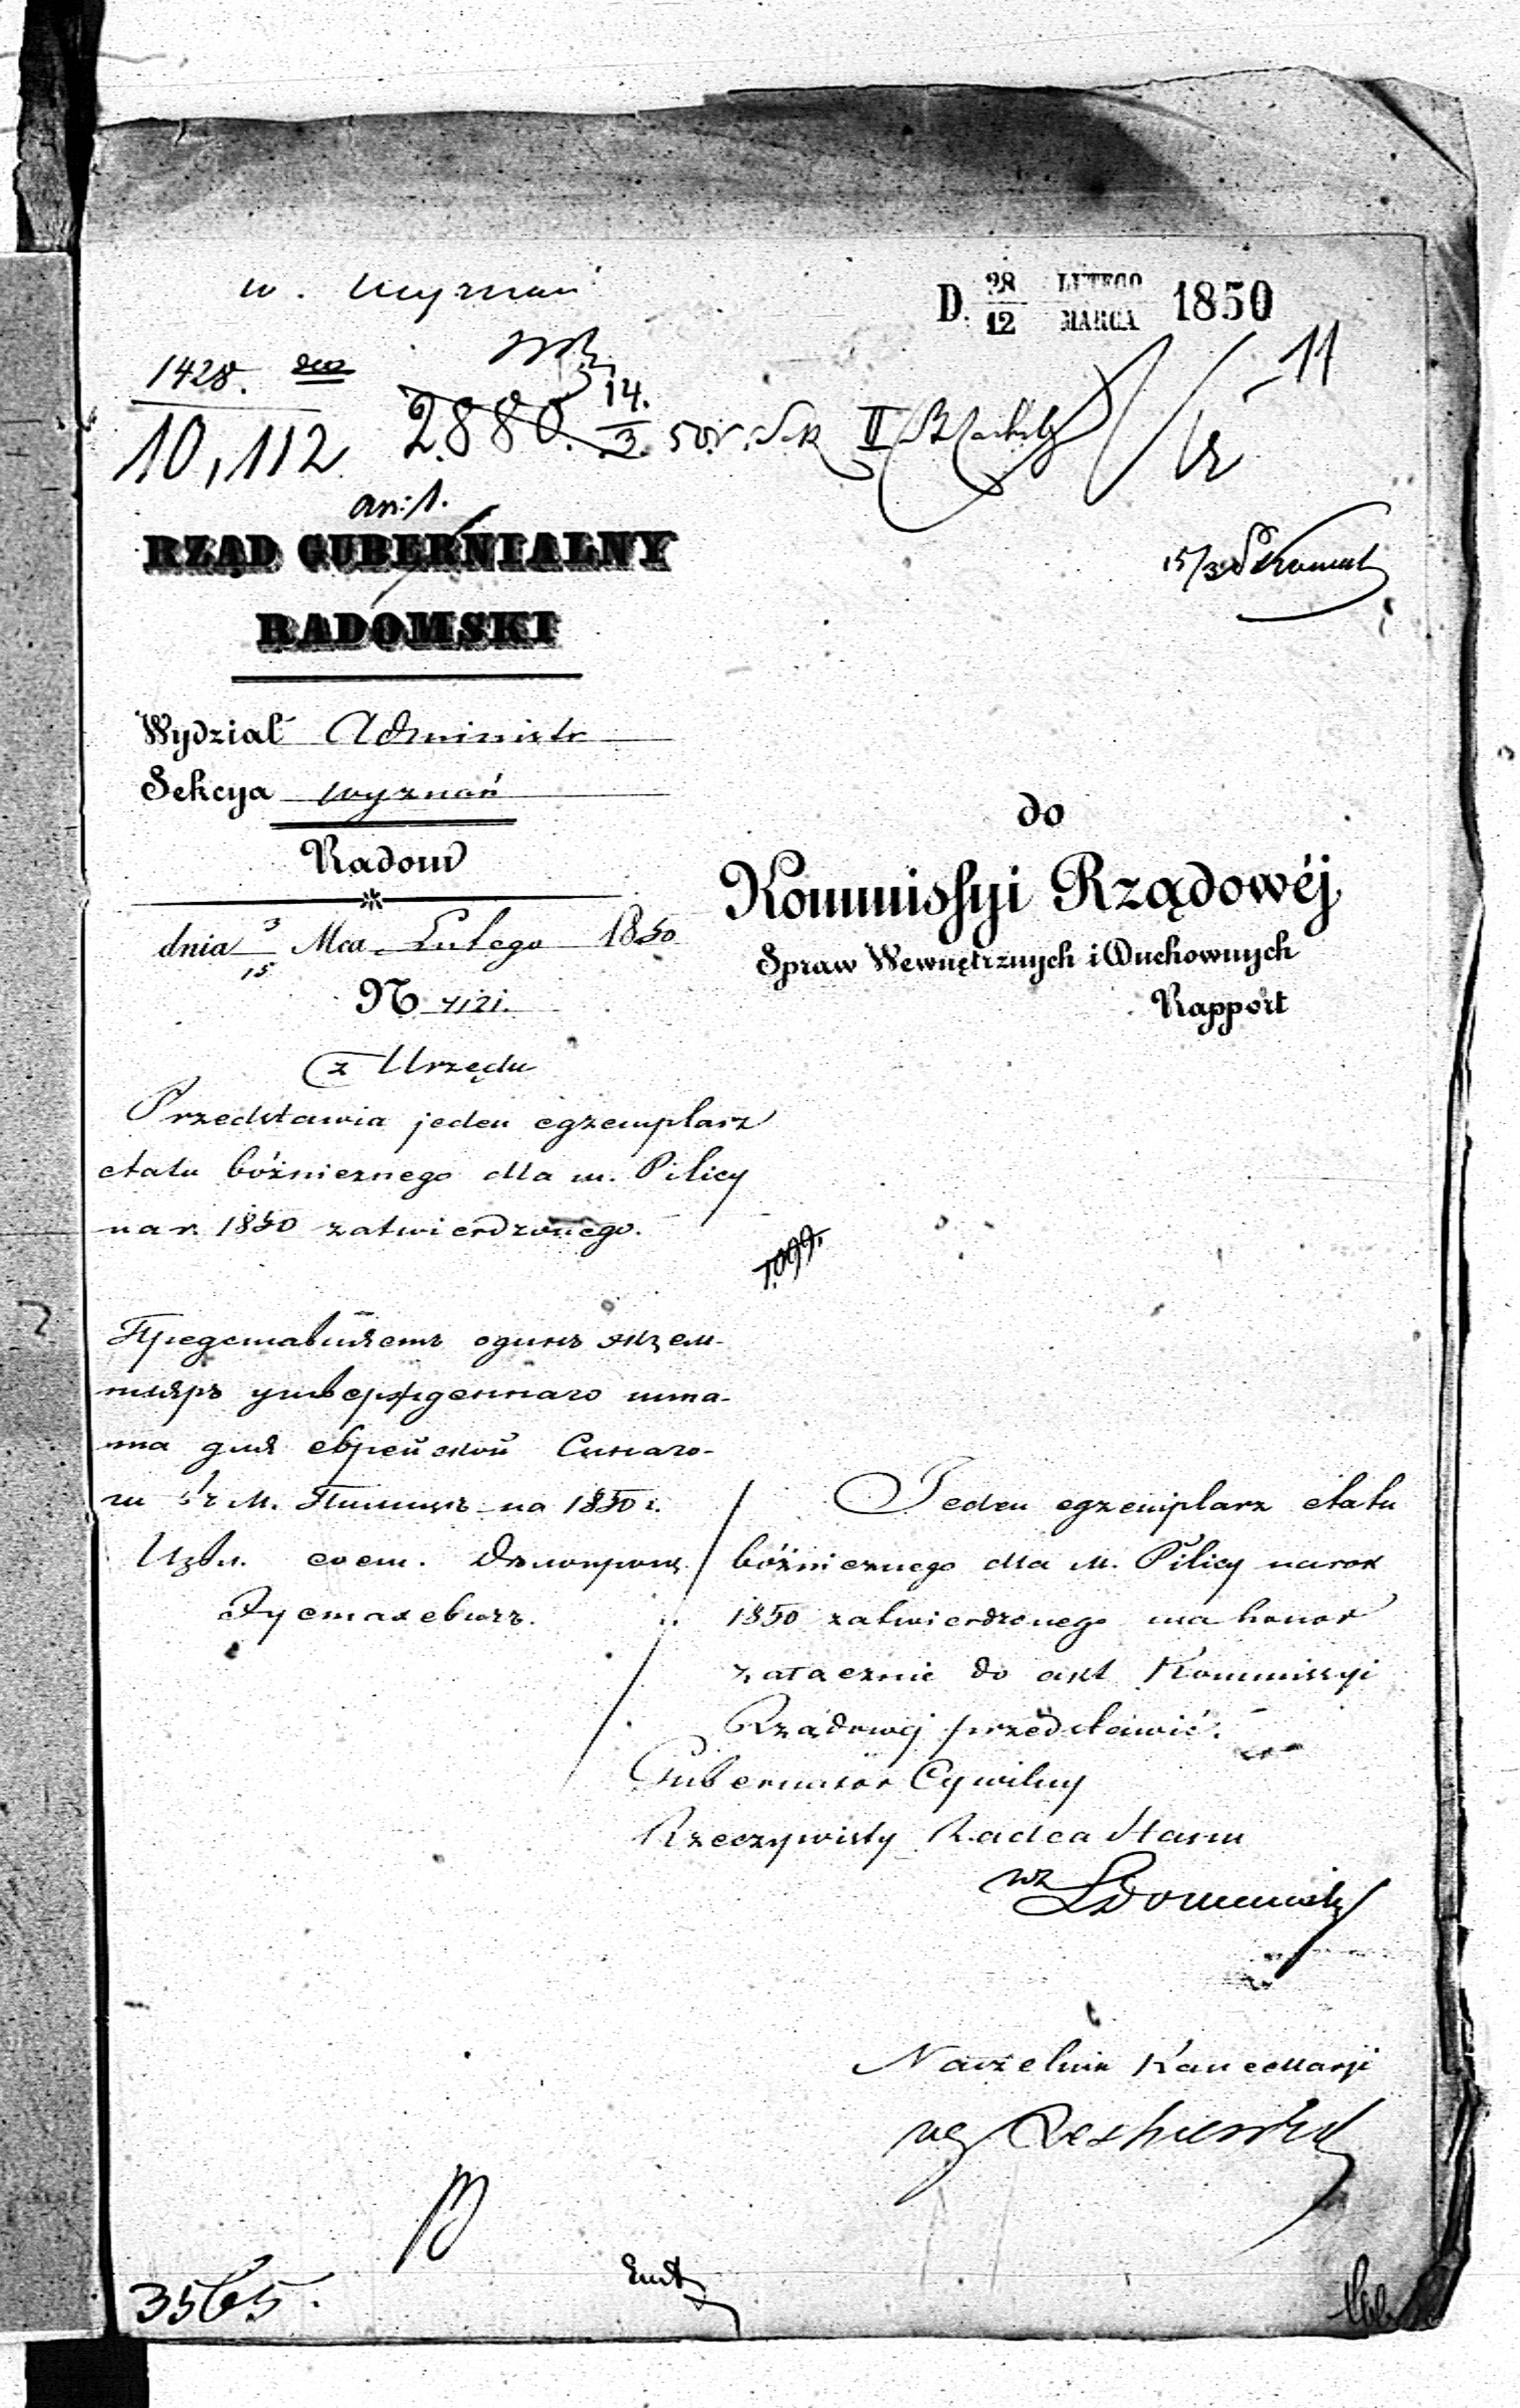 w. Wyznań
D. 28/12 LUTEGO/MARCA 1850
11
1428.
10,112
2880. 14./3. 50 r. Sek II
an: 1.
15/3
RZĄD GUBERNIALNY
RADOMSKI
Wydział Administr
Sekcya wyznań
Radom
dnia 3/15 Mca Lutego 1850
N 7121.
do
Kommissyi Rządowéj
Spraw Wewnętrznych i Duchownych
Rapport
z Urzędu
Przedstawia jeden egzemplarz
etatu bóżnicznego dla m. Pilicy
na r. 1850 zatwierdzonego.
1099.
Представляетъ одинъ экзем-
пляръ утвержденнаго шта-
та для еврейской Синаго-
ги въ м. Пилицѣ на 1850 г.
Jeden egzemplarz etatu
bóżnicznego dla m. Pilicy na rok
1850 zatwierdzonego ma honor
załącznie do akt Kommissyi
Rządowej przedstawić.
Gubernator Cywilny
Rzeczywisty Radca Stanu
wz
Naczelnik Kancellaryi
3565.